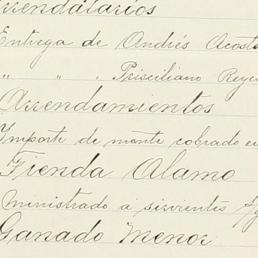 Arrendatarios
Entrega de Andrés Acosta
" " " Prisciliano Reyes
Arrendamientos
Importe de monte cobrado en
Tienda Alamo
Ministrado á sirvientes
Ganado Menor